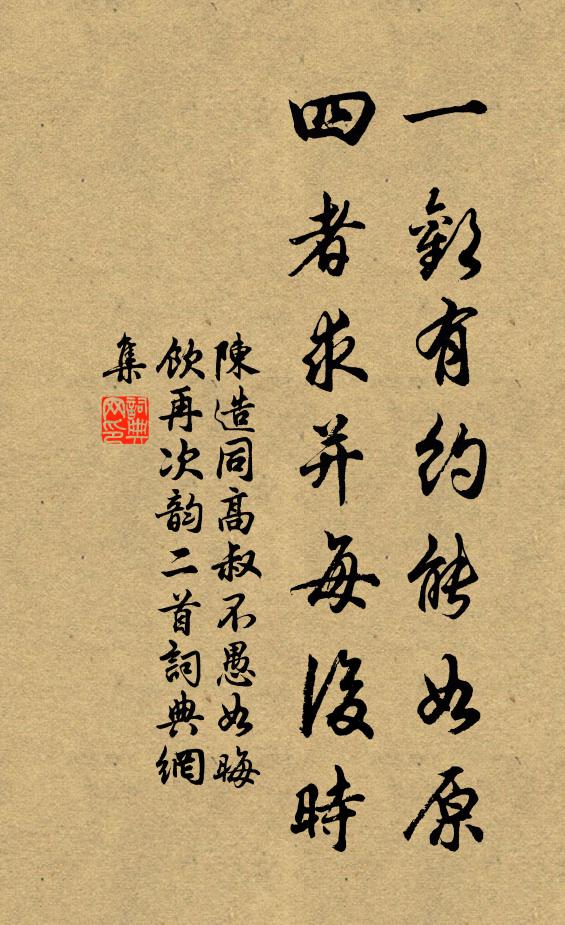 一歡有約能如原
四者求并每後時
陳造同高叔不愚如晦
飲再次韵二首詞典網
集
詞典网印